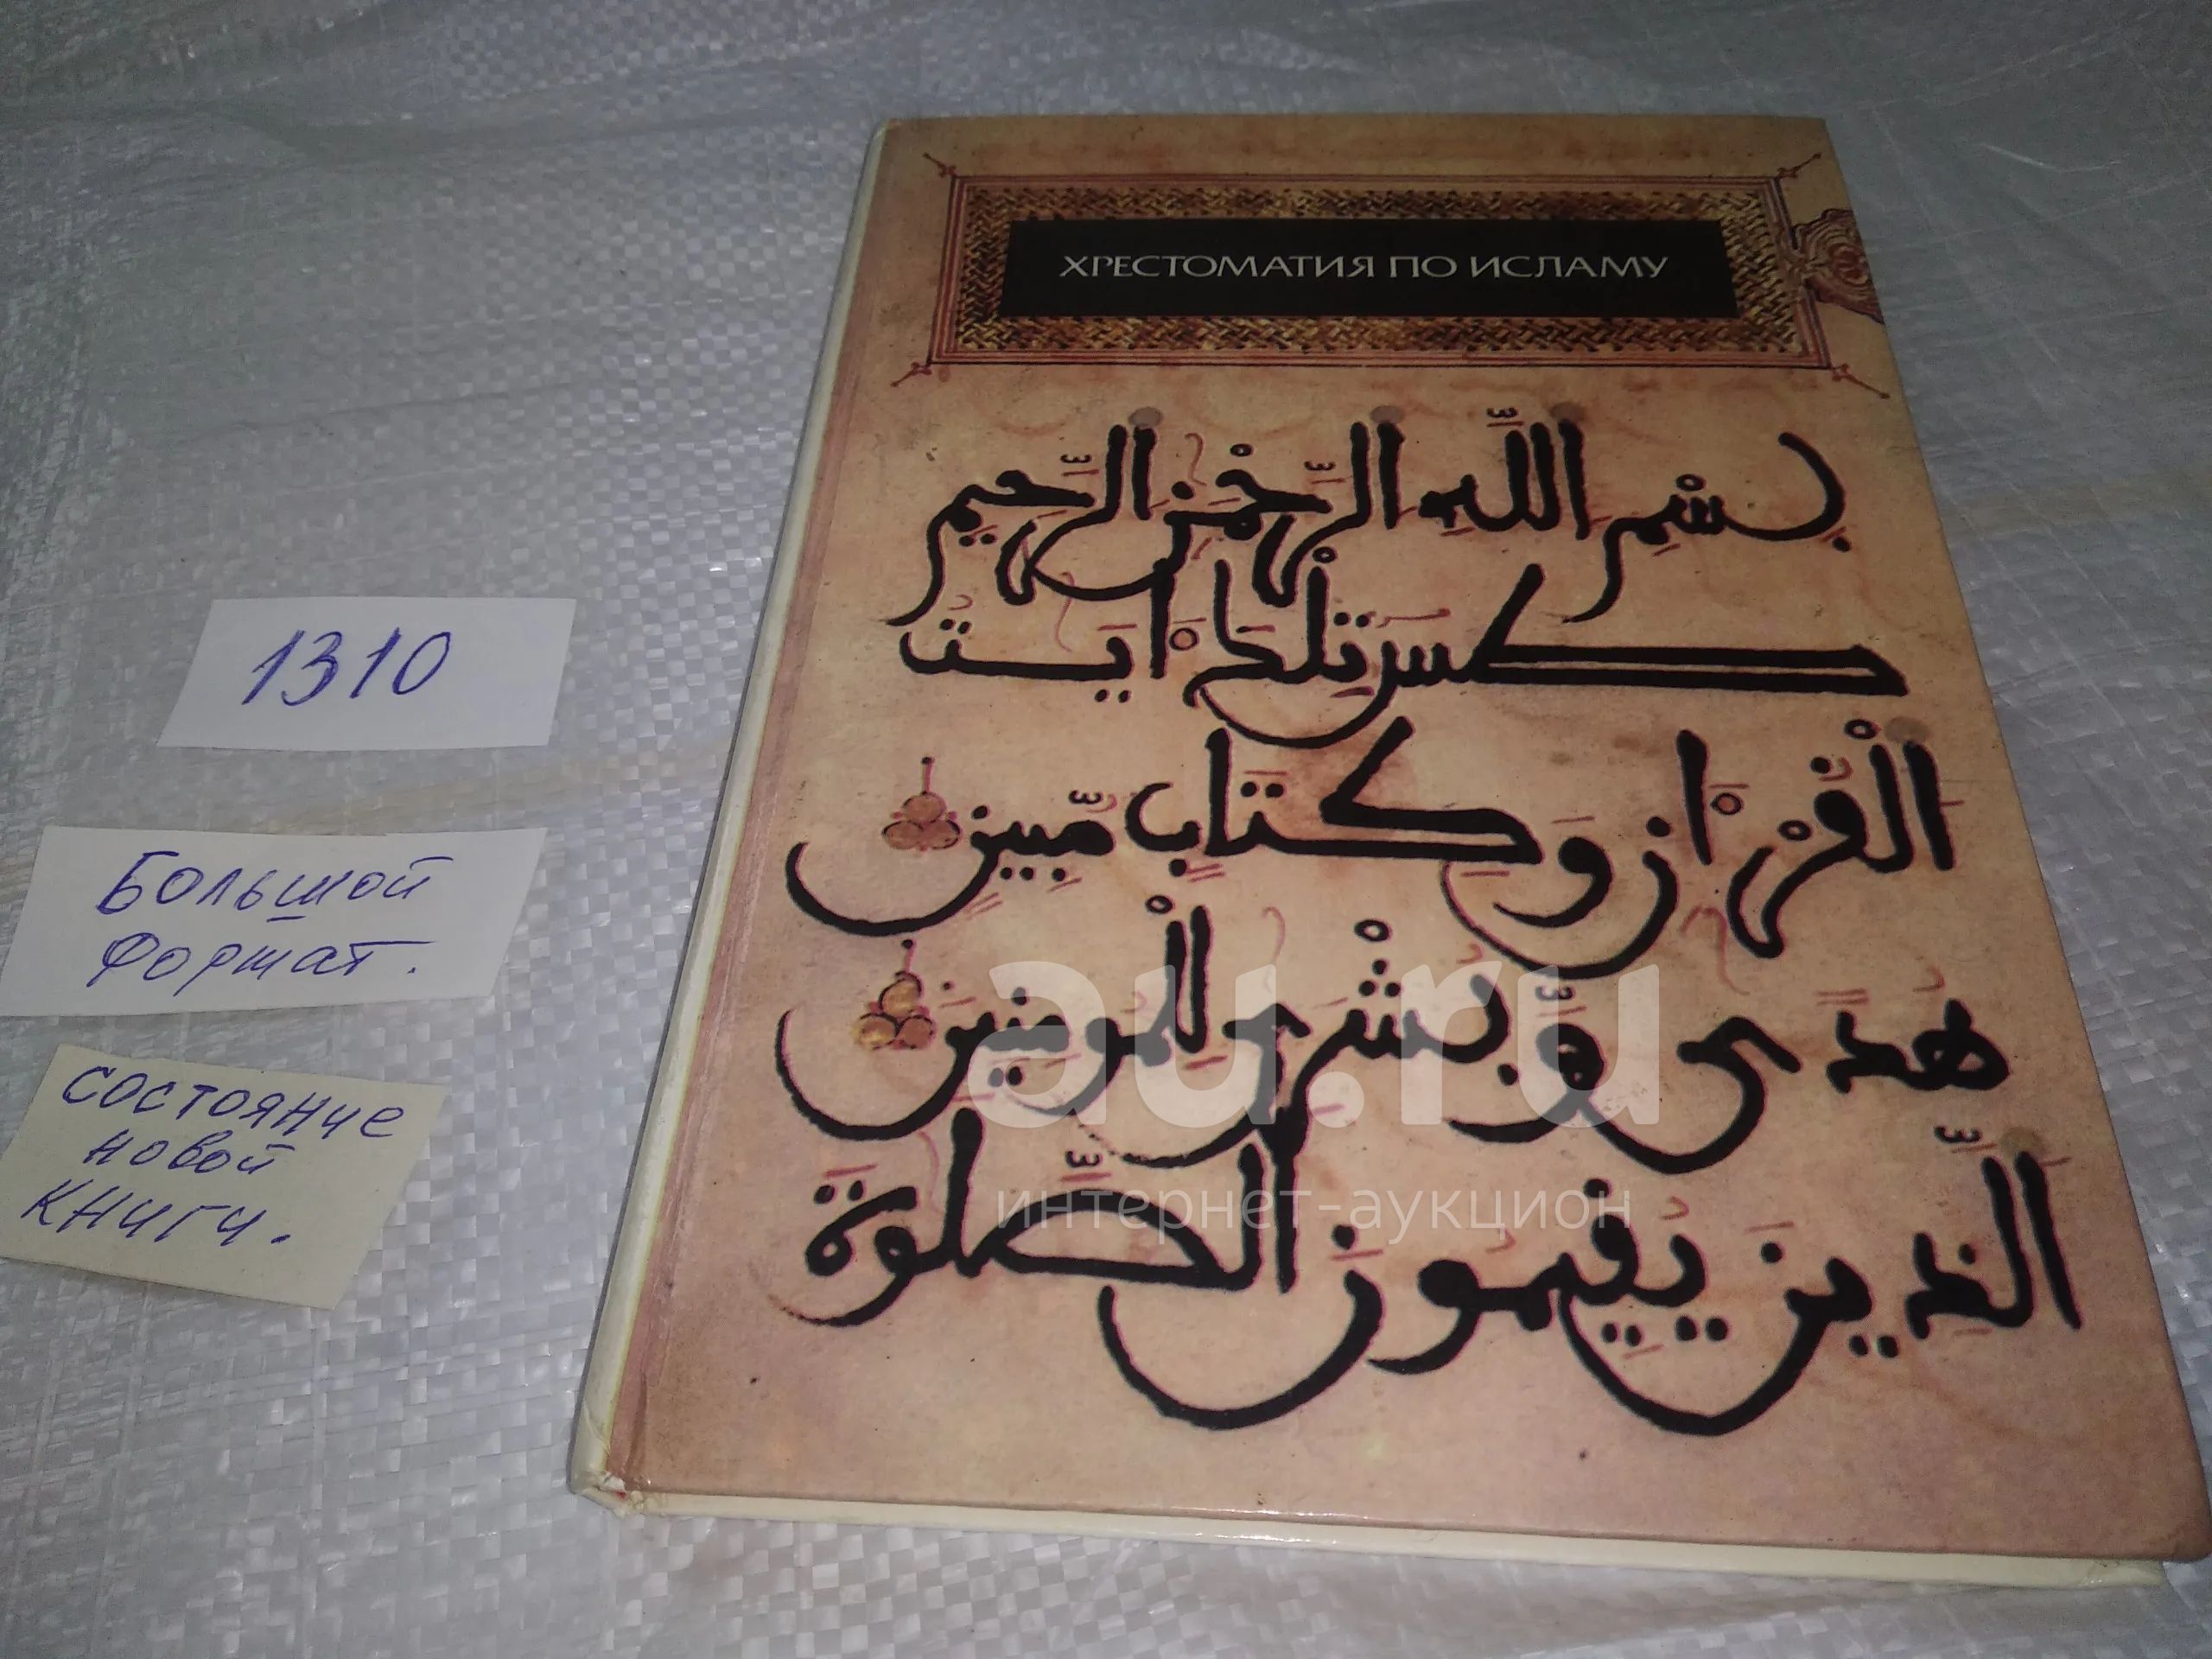 ХРЕСТОМАТИЯ ПО ИСЛАМУ
بِسْمِ اللَّهِ الرَّحْمَٰنِ الرَّحِيمِ
طسٓ تِلْكَ ءَايَٰتُ
الْقُرْءَانِ وَكِتَابٍ مُّبِينٍ
هُدًى وَبُشْرَىٰ لِلْمُومِنِينَ
الَّذِينَ يُقِيمُونَ الصَّلَوٰةَ
1310
Большой
формат.
состояние
новой
книги.
au.ru
интернет-аукцион